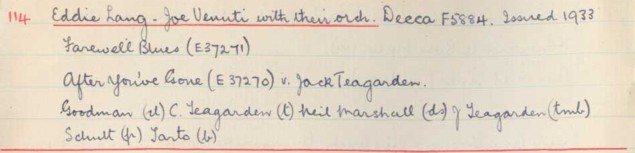 114 Eddie Lang - Joe Venuti with their orch. Decca F5884. Issued 1933
Farewell Blues (E37271)
After You've Gone (E 37270) v. Jack Teagarden.
Goodman (cl) C. Teagarden (t) Neil Marshall (ds) J Teagarden (tmb)
Schutt (p) Tarto (b)